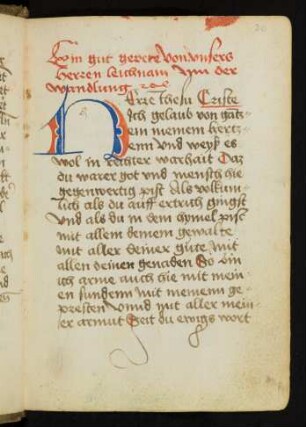 Ein gut gerete von vnsers
herren leichnam Inn der
wandlung
Herre ihesu Criste
Ich gelaub von gan-
cz in meinem hertz-
enn und weyß es
wol in rechter warhait Daz
du warer got und mensch hie
gegenwertig pist Als volkum-
lich als du auff ertrich gingst
Und als du in dem hymel pist
mit allem deinem gewalte
mit aller deiner gute mit
allen deinen genaden So bin
ich arme auch hie mit mein-
en sundenn mit meinenn ge-
presten Unnd mit aller mein-
er armut Seit du ewigs wort